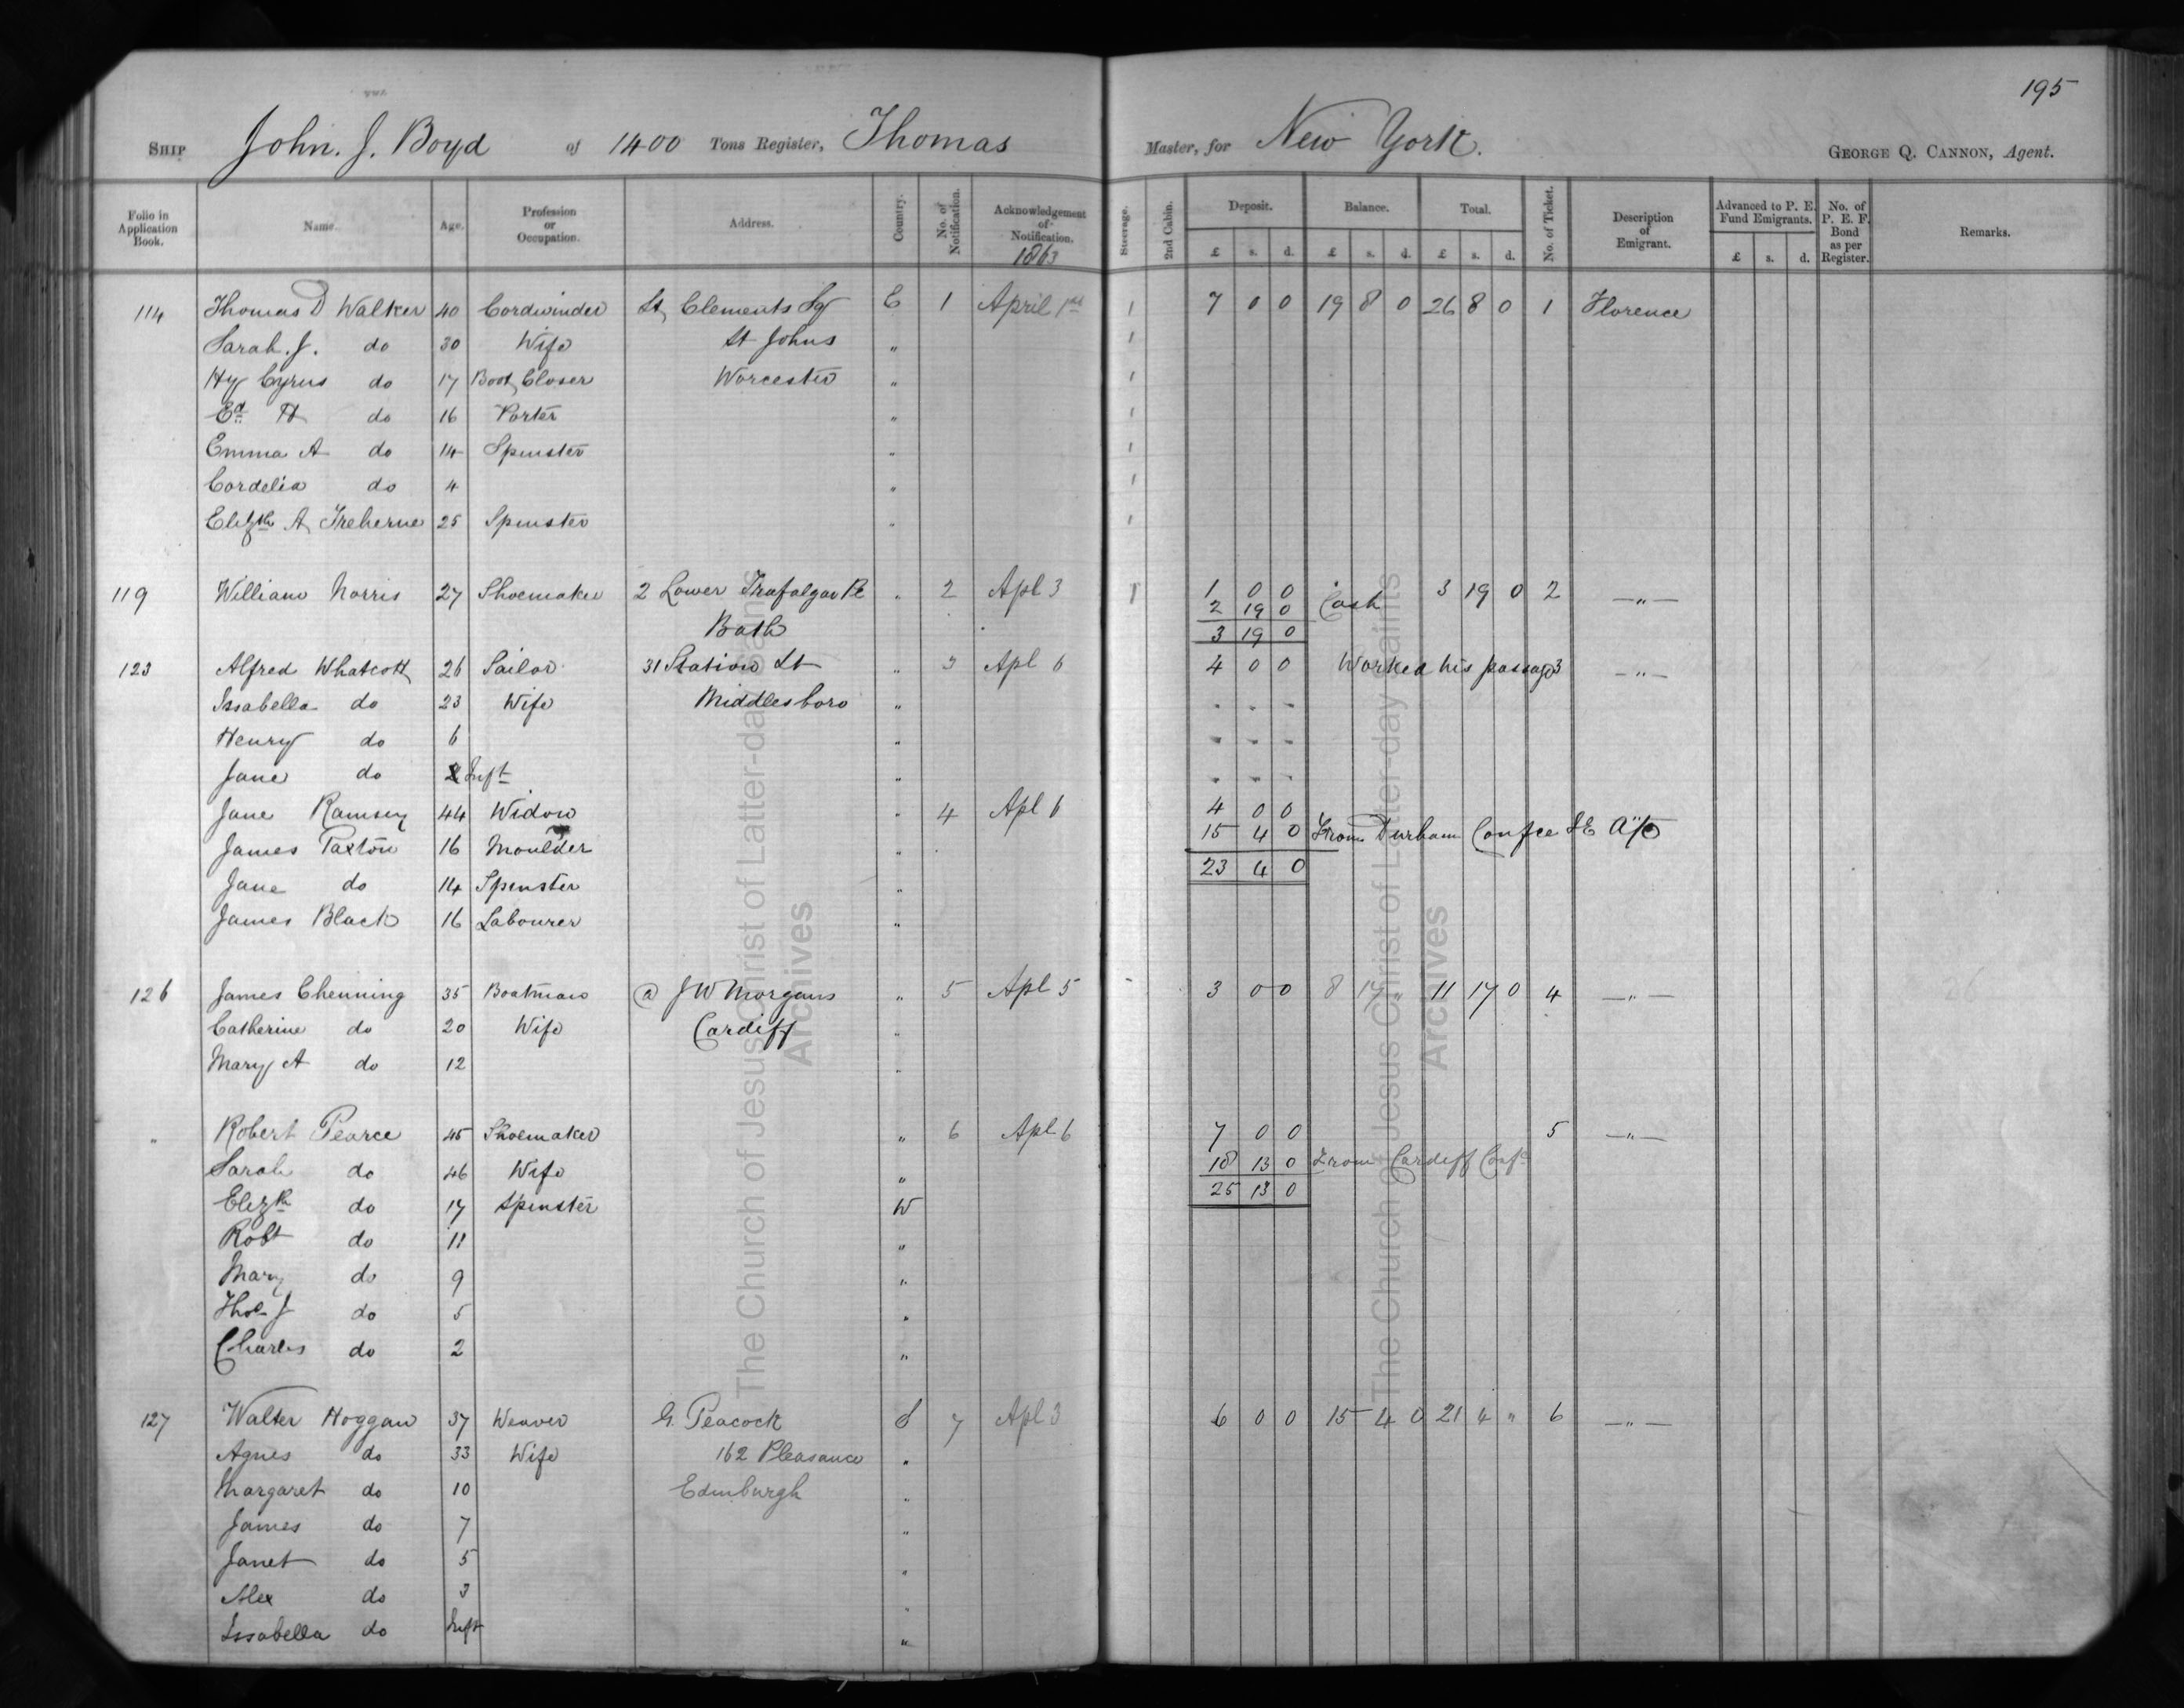 195
SHIP John. J. Boyd of 1400 Tons Register, Thomas Master, for New York. GEORGE Q. CANNON, Agent.
Folio in Application Book. Name. Age. Profession or Occupation. Address. Country. No. of Notification. Acknowledgement of Notification. 1863 Steerage. 2nd Cabin. Deposit. £ s. d. Balance. £ s. d. Total. £ s. d. No. of Ticket. Description of Emigrant. Advanced to P. E. Fund Emigrants. £ s. d. No. of P. E. F. Bond as per Register. Remarks.
114 Thomas D Walker 40 Cordwinder St Clements Sq E 1 April 1st 1 7 0 0 19 8 0 26 8 0 1 Florence
Sarah. J. do 30 Wife St Johns " 1
Hy Cyrus do 17 Boot Closer Worcester " 1
Ed H do 16 Porter " 1
Emma A do 14 Spinster " 1
Cordelia do 4 " 1
Elizth A Treherne 25 Spinster " 1
119 William Norris 27 Shoemaker 2 Lower Trafalgar Pl " 2 Apl 3 1 1 0 0 3 19 0 2 —"—
2 19 0 Cash
Bath 3 19 0
123 Alfred Whatcott 26 Sailor 31 Station St " 3 Apl 6 4 0 0 Worked his passage 3 —"—
Issabella do 23 Wife Middlesboro " - - -
Henry do 6 " - - -
Jane do Inft " - - -
Jane Ramsey 44 Widow " 4 Apl 6 4 0 0
James Paxton 16 Moulder " 15 4 0 From Durham Confce
Jane do 14 Spinster " 23 4 0
James Black 16 Labourer "
126 James Chenning 35 Boatman @ J W Morgans " 5 Apl 5 3 0 0 8 17 " 11 17 0 4 —"—
Catherine do 20 Wife Cardiff "
Mary A do 12 "
" Robert Pearce 45 Shoemaker " 6 Apl 6 7 0 0 5 —"—
Sarah do 46 Wife " 18 13 0 From Cardiff Confe
Elizth do 17 Spinster W 25 13 0
Robt do 11 "
Mary do 9 "
Thos J do 5 "
Charles do 2 "
127 Walter Hoggan 37 Weaver G. Peacock S 7 Apl 3 6 0 0 15 4 0 21 4 " 6 —"—
Agnes do 33 Wife 162 Pleasance "
Margaret do 10 Edinburgh "
James do 7 "
Janet do 5 "
Alex do 3 "
Issabella do Inft "
The Church of Jesus Christ of Latter-day Saints
Archives
The Church of Jesus Christ of Latter-day Saints
Archives